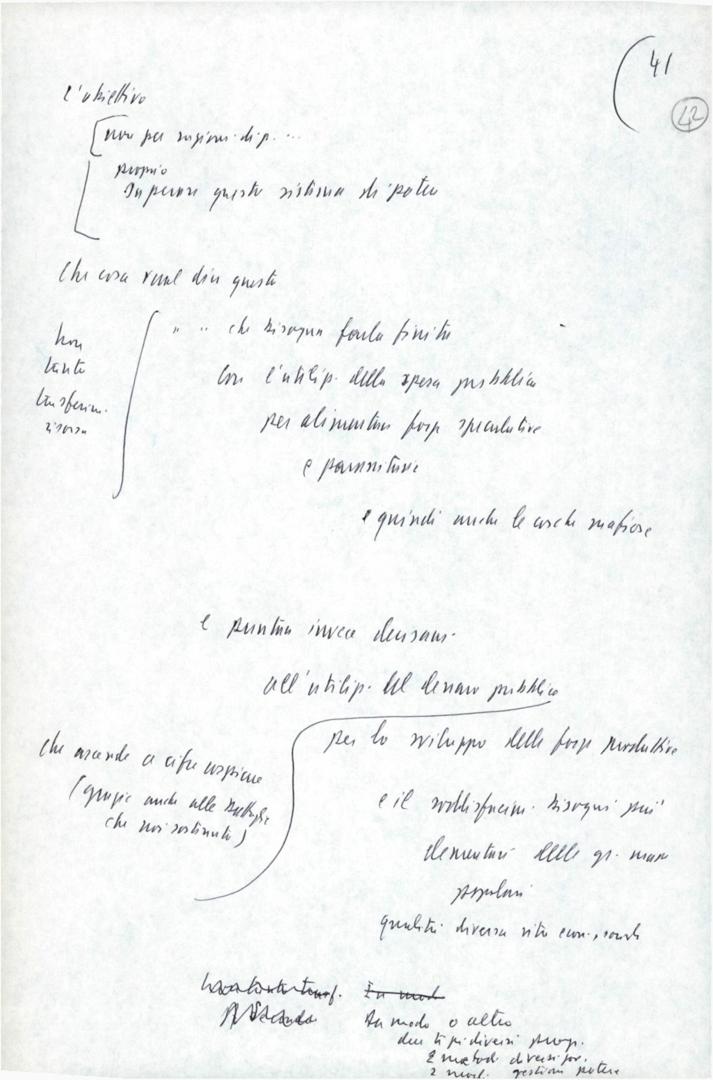 41
42
L'obiettivo
non per ragioni di p. ...
proprio
Superare questo sistema di potere
Che cosa vuol dire questo
" " che bisogna farla finita
non
tanto
trasferim.
risorse
con l'utiliz. della spesa pubblica
per alimentare forze speculative
e parassitarie
e quindi anche le cosche mafiose
e puntare invece decisam.
all'utiliz. del denaro pubblico
che ascende a cifre cospicue
(grazie anche alle battaglie
che noi sostenuto)
per lo sviluppo delle forze produttive
e il soddisfacim. bisogni più
elementari delle gr. masse
popolari
qualità diversa vita econ., soc.
In mod
In modo o altro
due tipi diversi prog.
2 metodi diversi
2 mod. gestione potere